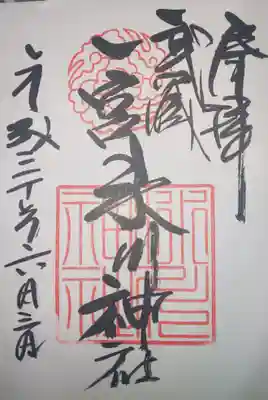 奉拝
武蔵
一宮氷川神社
平成三十年六月三日